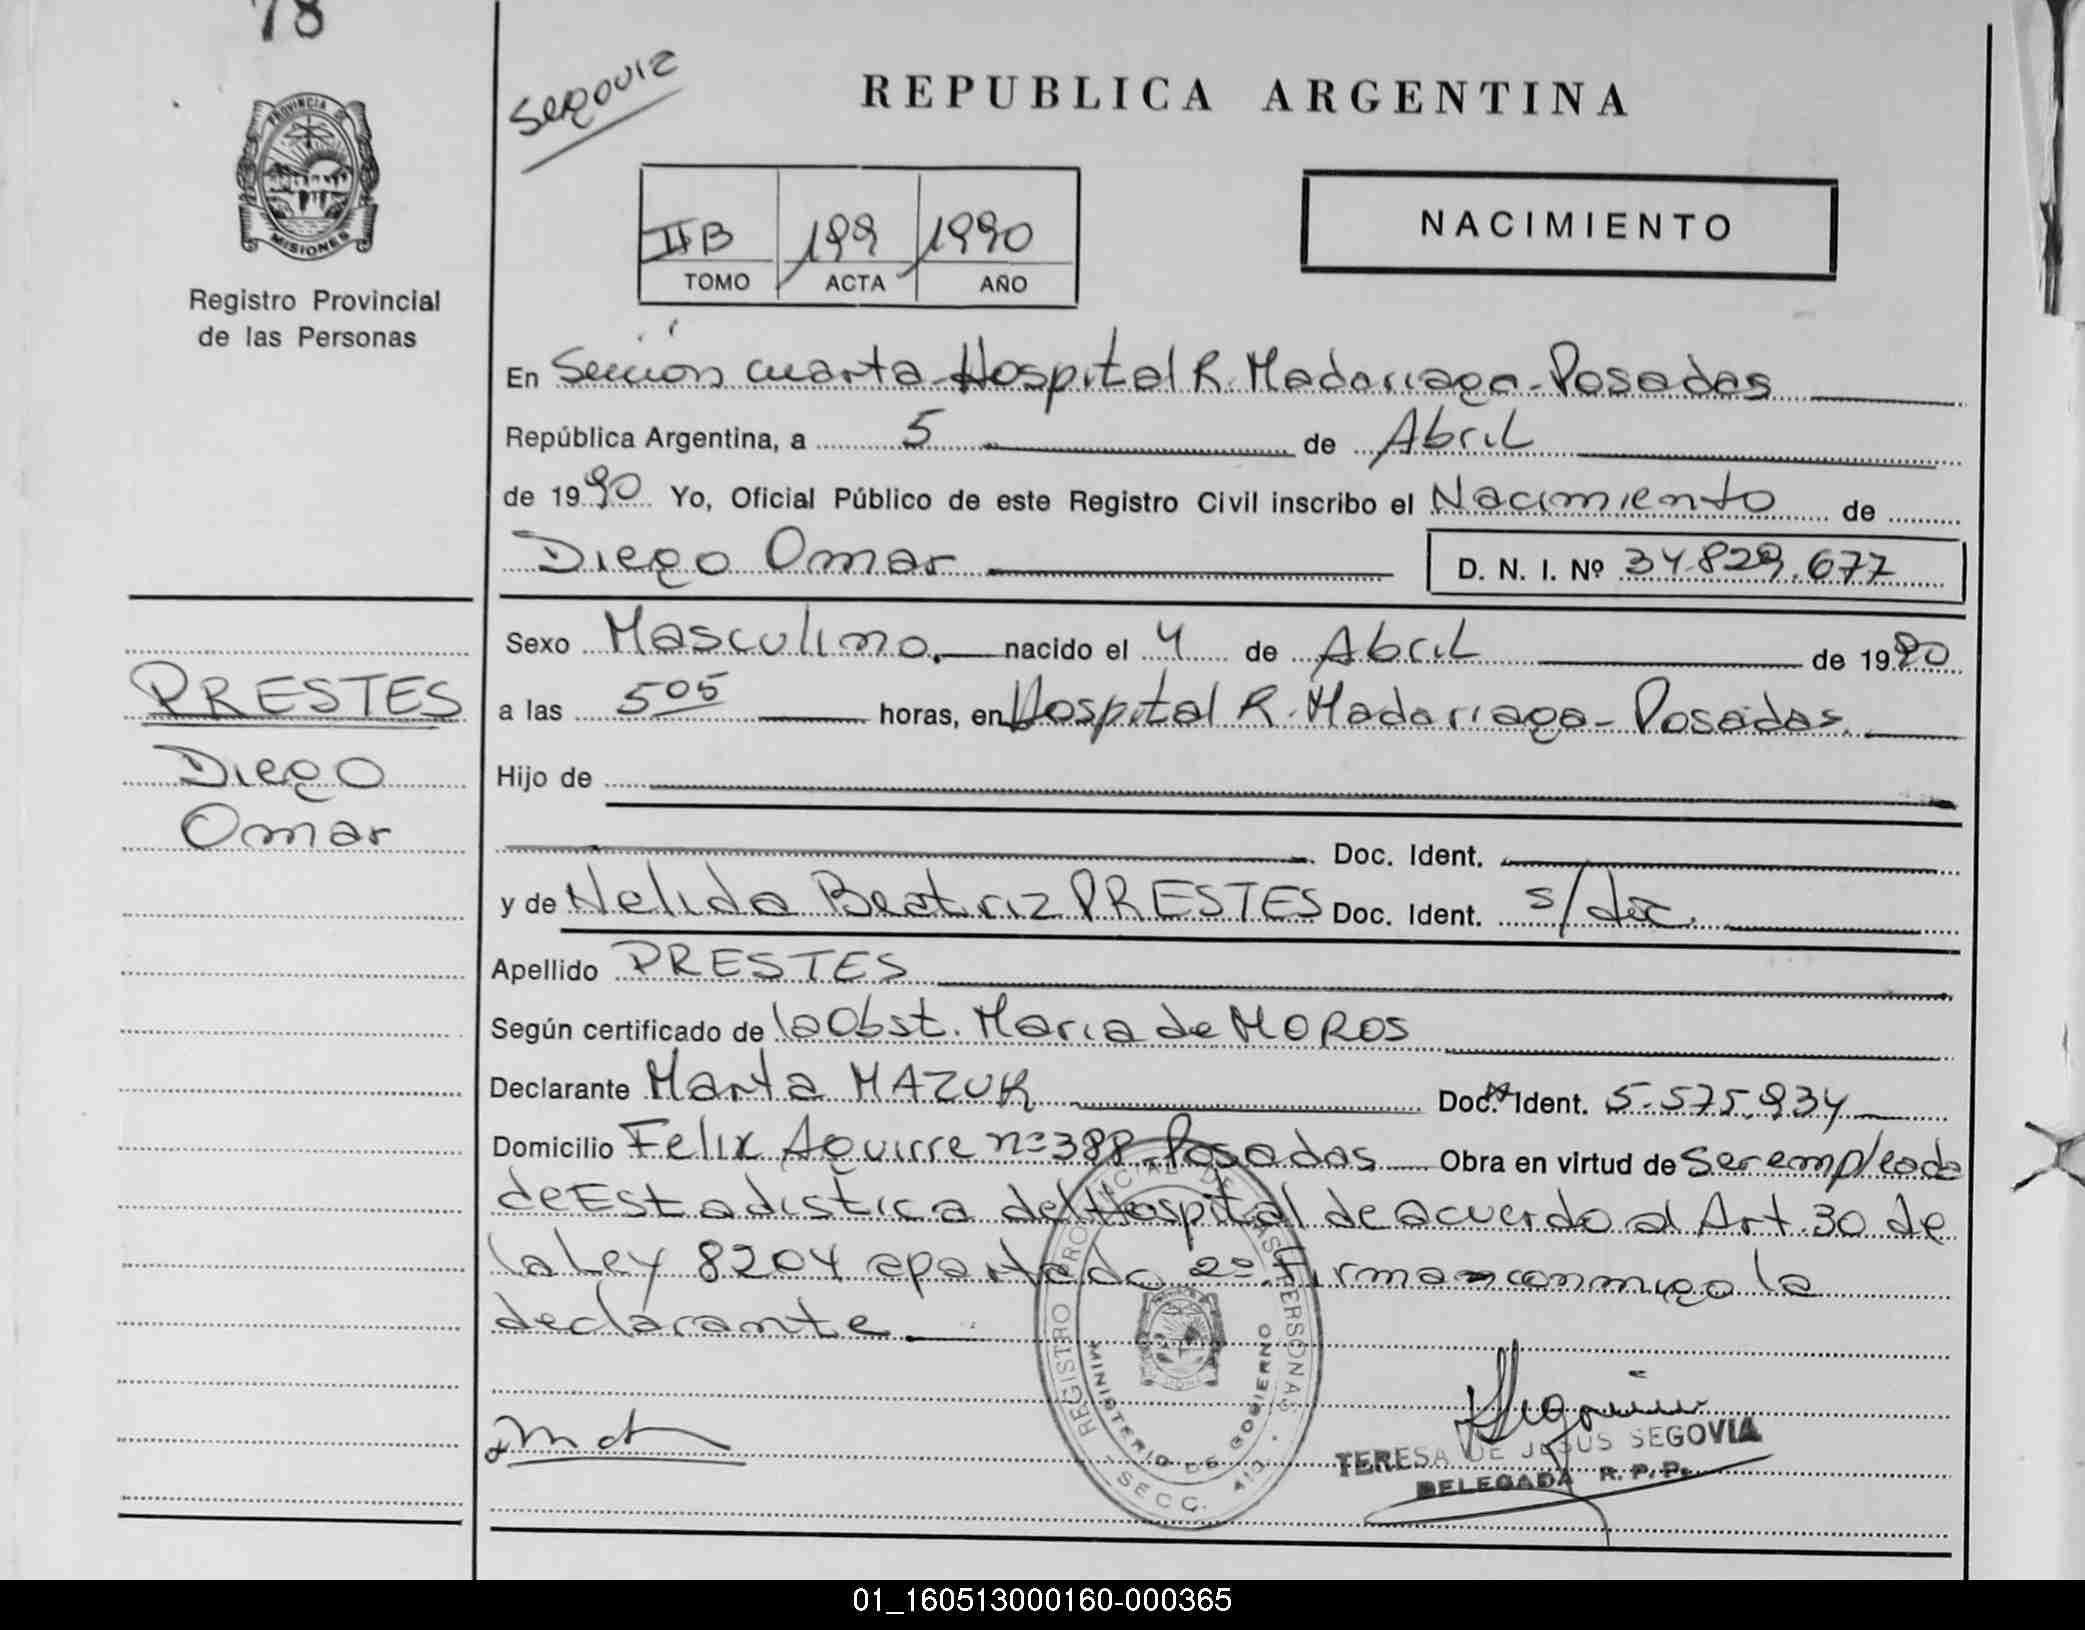 78
Segovia
REPUBLICA ARGENTINA
PROVINCIA DE
MISIONES
Registro Provincial
de las Personas
IIB 199 1990
TOMO ACTA AÑO
NACIMIENTO
En Sección cuarta Hospital R. Madariaga - Posadas
República Argentina, a 5 de Abril
de 1990 Yo, Oficial Público de este Registro Civil inscribo el Nacimiento de
Diego Omar D. N. I. Nº 34.829.677
Sexo Masculino. nacido el 4 de Abril de 1990
a las 505 horas, en Hospital R. Madariaga - Posadas.
Hijo de
Doc. Ident.
y de Nelida Beatriz PRESTES Doc. Ident. s/doc.
Apellido PRESTES
Según certificado de la Obst. Maria de MOROS
Declarante Marta MAZUR Doc. Ident. 5.575.934
Domicilio Felix Aguirre nº 388 Posadas Obra en virtud de ser empleada
de Estadistica del Hospital de acuerdo al Art. 30 de
la Ley 8204 apartado 2º. Firma conmigo la
declarante
PRESTES
Diego
Omar
REGISTRO PROVINCIAL DE LAS PERSONAS
MINISTERIO DE GOBIERNO
SECC. 4
TERESA DE JESUS SEGOVIA
DELEGADA R. P. P.
01_160513000160-000365